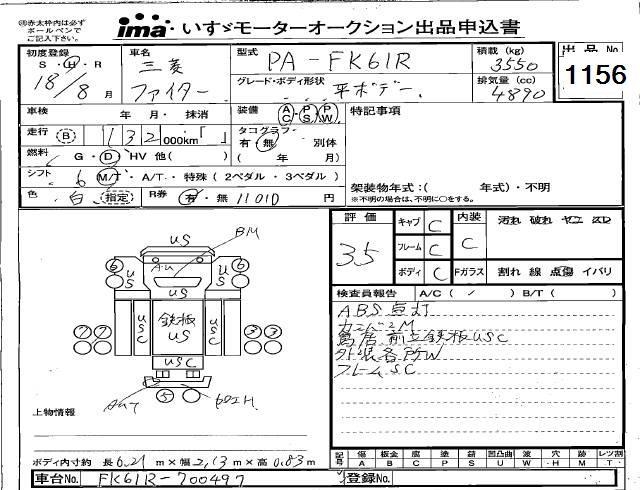 ㊟赤太枠内は必ず
ボールペンで
ご記入下さい。
ima いすゞモーターオークション出品申込書
初度登録 S・H・R 18/8月
車名 三菱 ファイター
型式 PA-FK61R
積載(kg) 3550
出品No 1156
グレード・ボディ形状 平ボデー
排気量(cc) 4890
車検 年 月・ 抹消
装備 AC・PS・PW
特記事項
走行 B 132000km「 」
タコグラフ 有・無 別体
( 年 月)
燃料 G・D・HV 他( )
シフト 6 M/T・A/T・特殊(2ペダル・3ペダル)
架装物年式:( 年式)・不明
※不明の場合は、不明に○をする。
色 白 指定 R券 有・無 11010円
評価 35
キャブ C 内装 C 汚れ 破れ ヤニ スレ
フレーム C
ボディ C Fガラス 割れ 線 点傷 イバリ
検査員報告 A/C( / ) B/T( )
ABS点灯
鳥居前立鉄板USC
外装各所W
フレームSC
US BM
6 US US 6
US
USC 鉄板 US USC
USC
5
上物情報
ボディ内寸約 長6.21m×幅2.13m×高0.83m
記号 傷A 板金B 腐C 塗P 錆S 凹凸曲U 波W 穴H 跡M レツ割T
車台No. FK61R-700497 登録No.